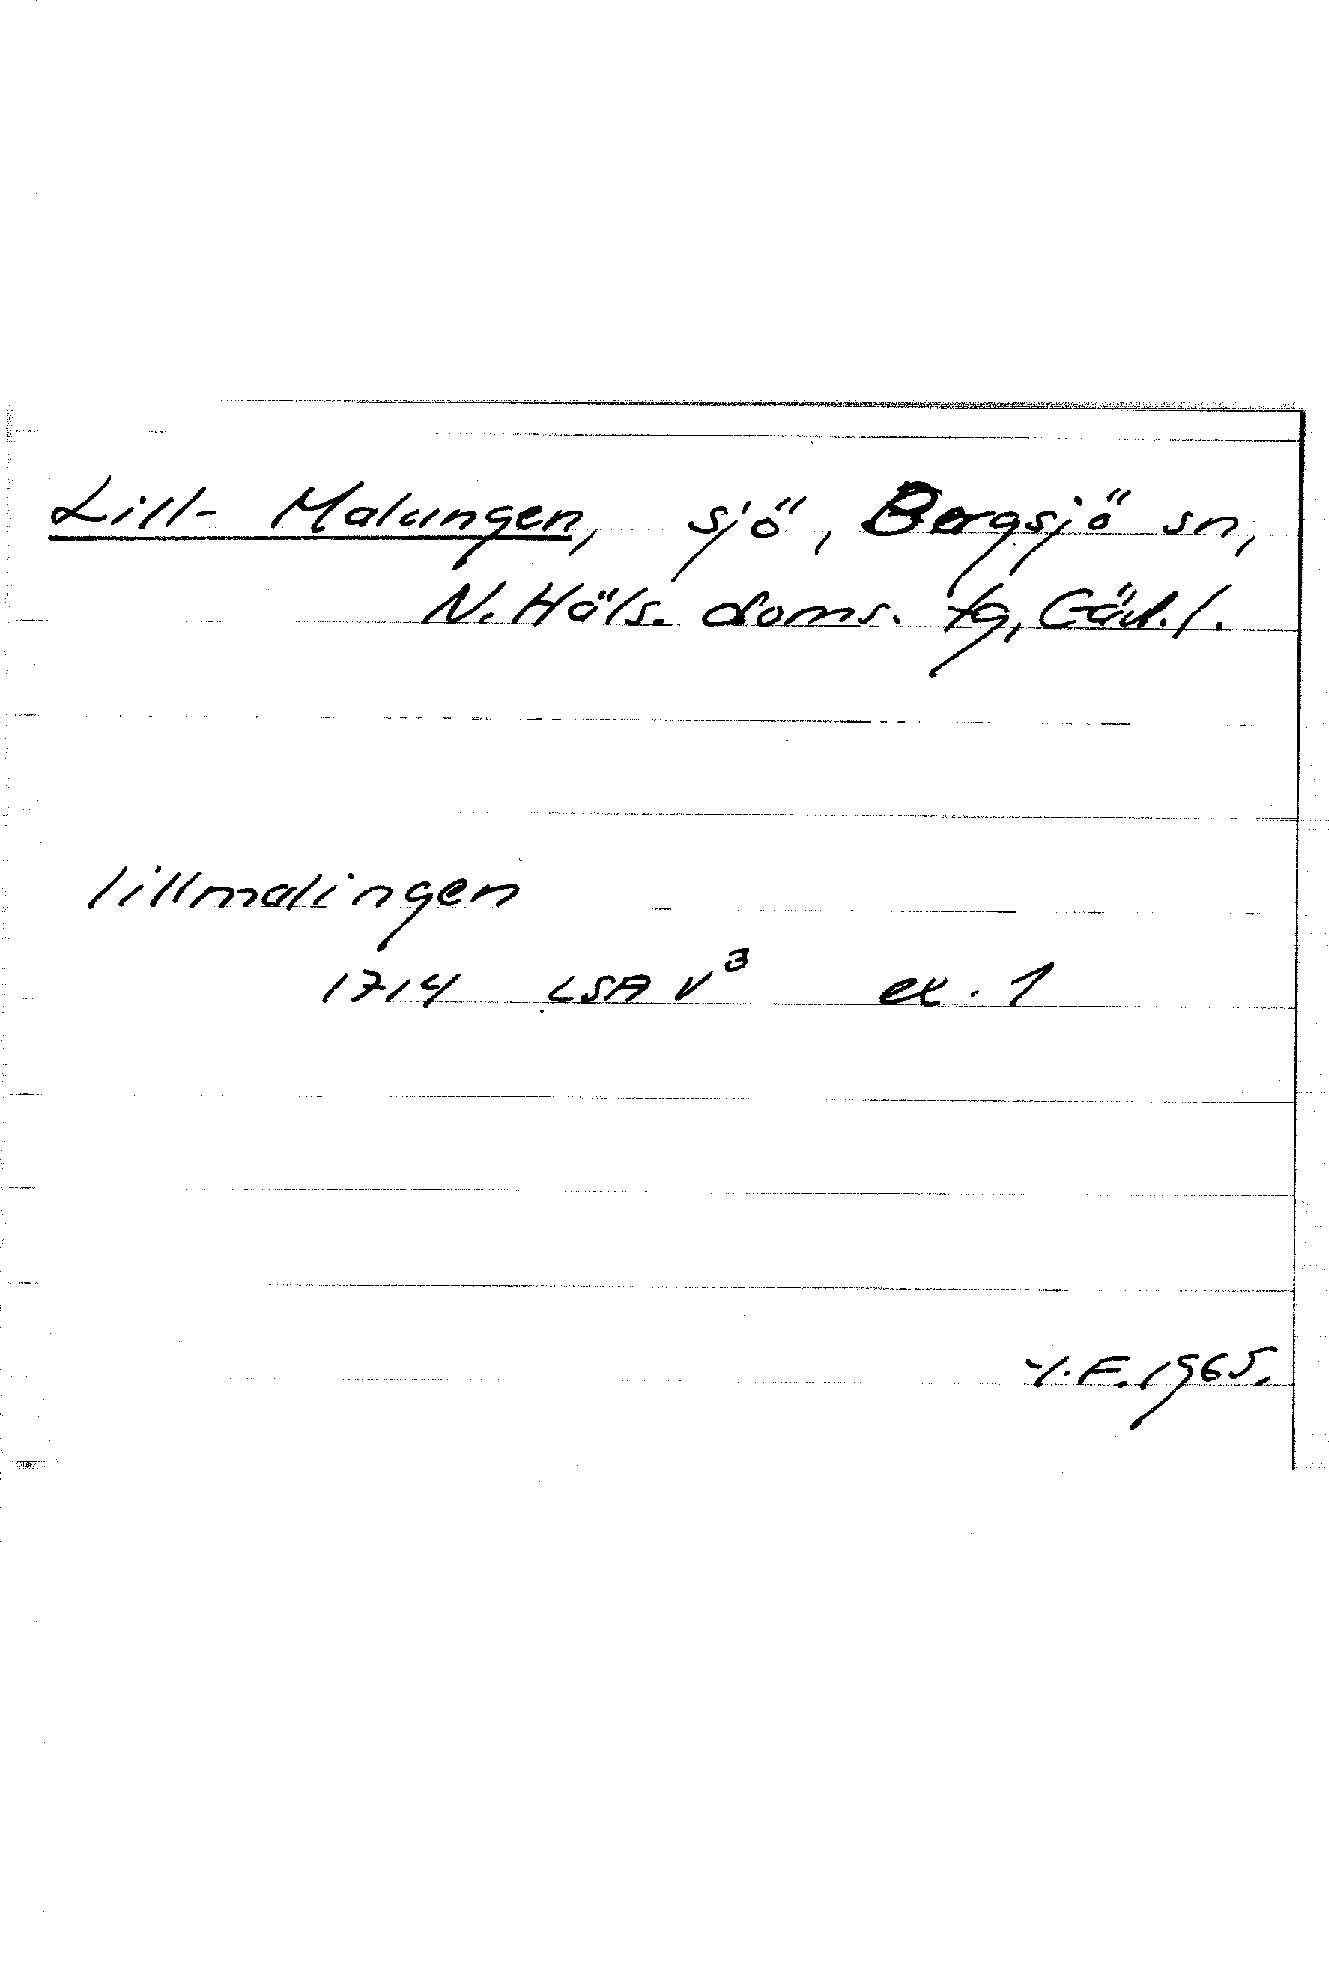 Lill- Malungen, sjö, Bergsjö sn,
N. Häls. doms. tg, Gävl. l.
lillmalingen
1714 LSA V³ ex. 1
Y.F. 1965.